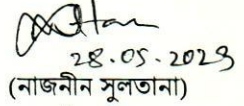 28.05.2023
(নাজনীন সুলতানা)